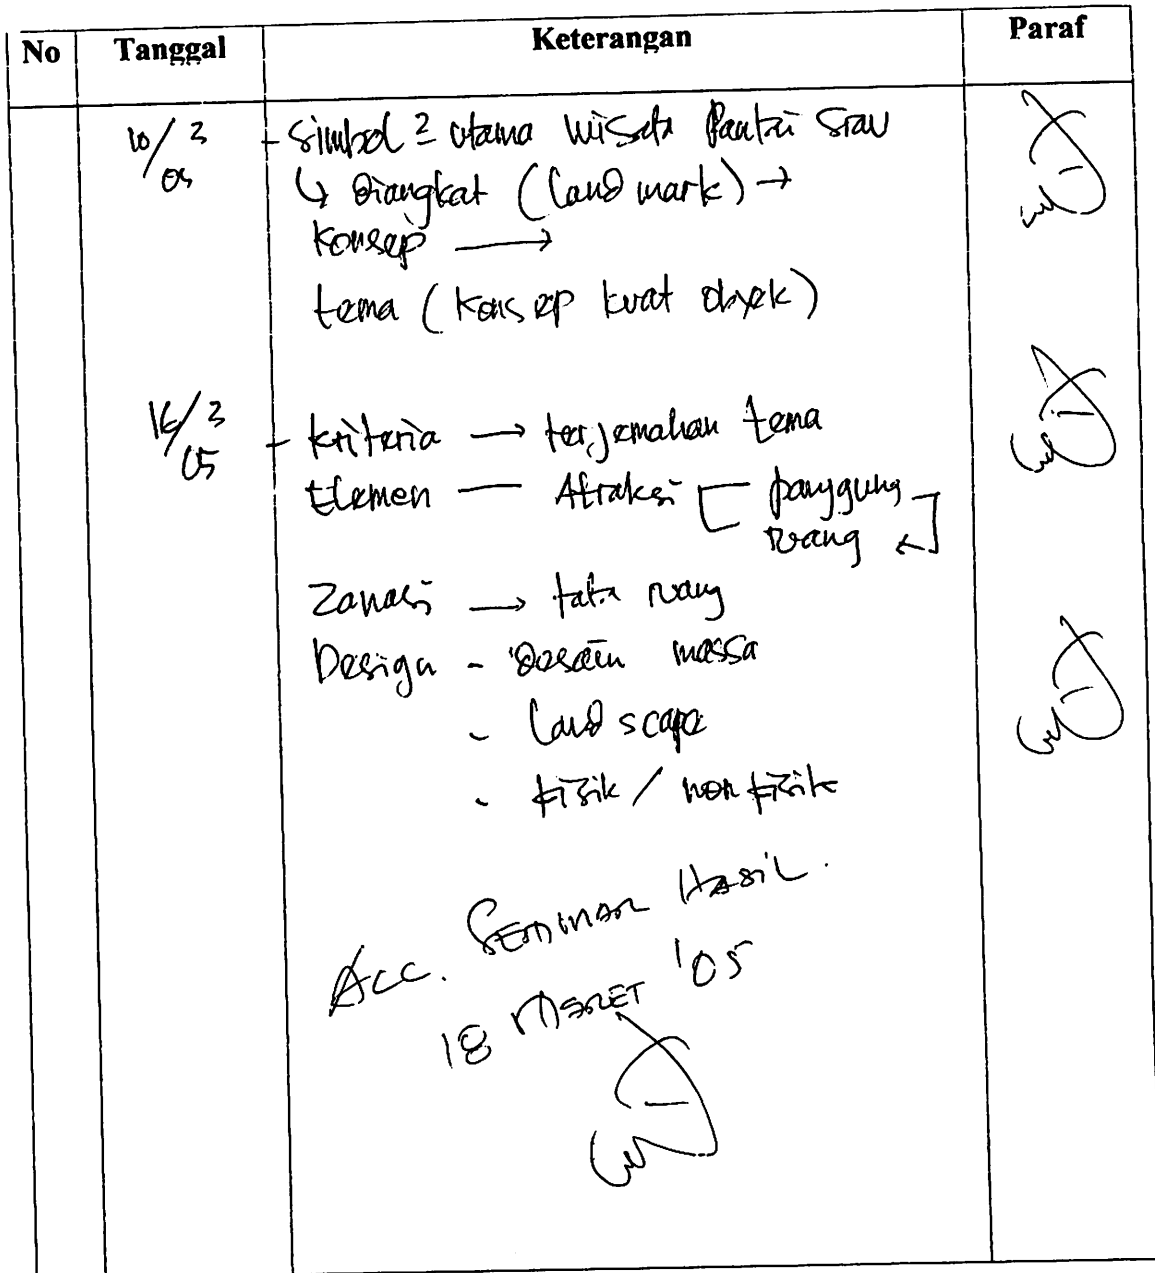 No Tanggal Keterangan Paraf
10/3 05 - Simbol 2 utama wisata Pantai Siau
↳ Diangkat (land mark) →
Konsep →
tema (Konsep kuat obyek)
16/3 05 - kriteria → terjemahan tema
Elemen — Atraksi [ panggung
ruang ←]
Zonasi → tata ruang
Design - Desain massa
- land scape
- fisik / non fisik
Acc. SEMINAR HASIL.
18 MARET '05